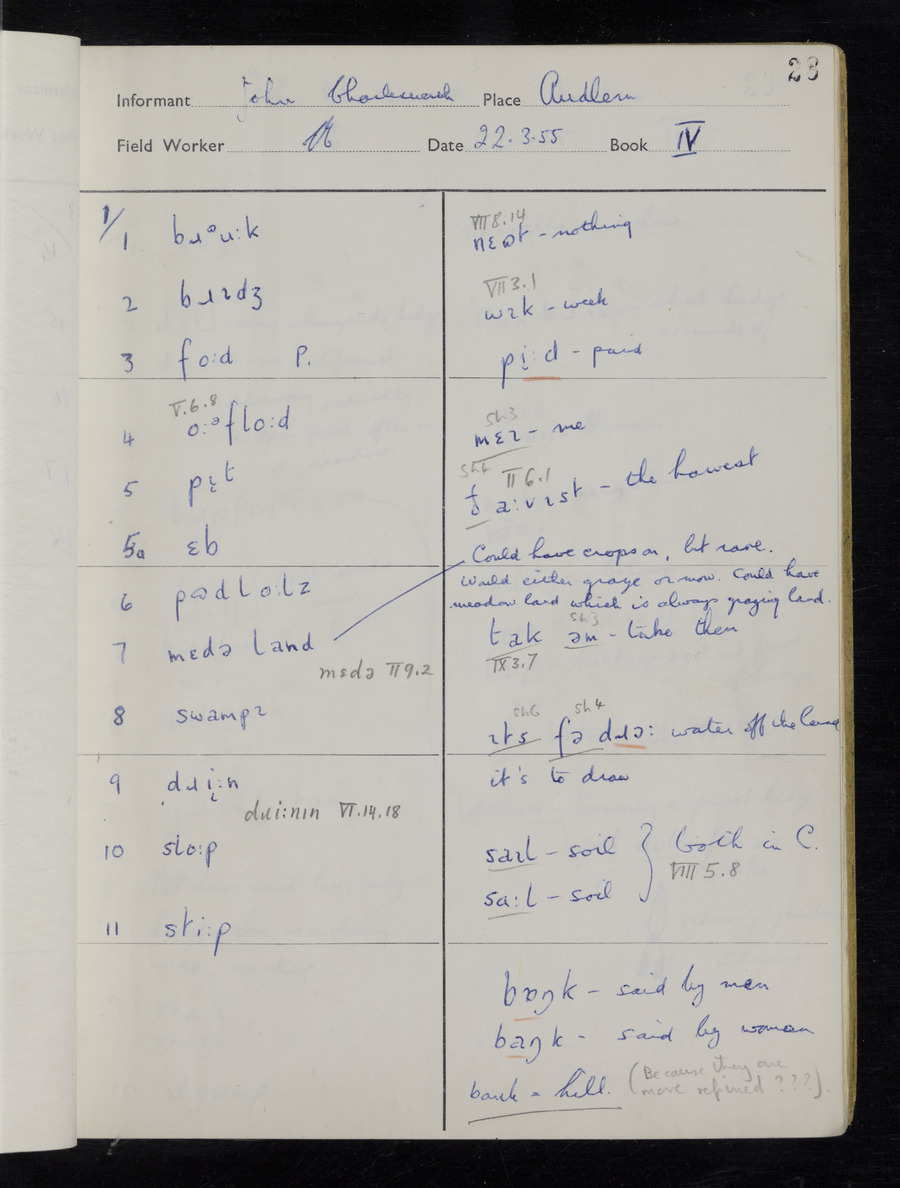 28
Informant John Charlesworth Place Audlem
Field Worker Date 22.3.55 Book IV
1/
1 bɹᵊu:k
2 bɹɪdʒ
3 fo:d P.
V.6.8
4 o:ᵊflo:d
5 pɪ̞t
5a ɛb
6 pɒdlo:lz
7 mɛdə land
mɛdə II 9.2
8 swampɪ
9 dɹi̞:n
dɹi:nɪn VI.14.18
10 slo:p
11 sti:p
VII 8.14
nɛɒt - nothing
VII 3.1
wɪk - week
pi̞:d - paid
Sh3
mɛɪ - me
Sh6 II 6.1
ða:vɪst - the harvest
Could have crops on, but rare.
Would either graze or mow. Could have
meadow land which is always grazing land.
Sh3
tak əm - take them
IX 3.7
Sh6 Sh4
ɪts fə dɹə: water off the land
it's to draw
saɪl - soil } both in C.
VIII 5.8
sa:l - soil
bɒŋk - said by men
baŋk - said by women
bank = hill. (Because they are
more refined ???).